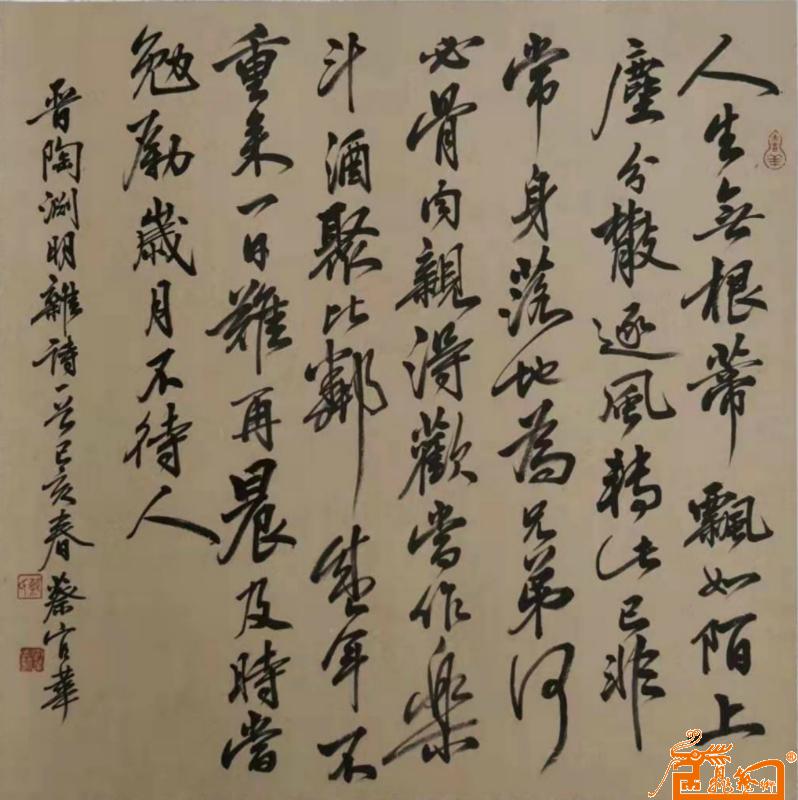 人生無根蒂飄如陌上
塵分散逐風轉此已非
常身落地為兄弟何
必骨肉親得歡當作樂
斗酒聚比鄰盛年不
重来一日難再晨及時當
勉勵歲月不待人
晋陶渊明雜詩一首己亥春蔡官華